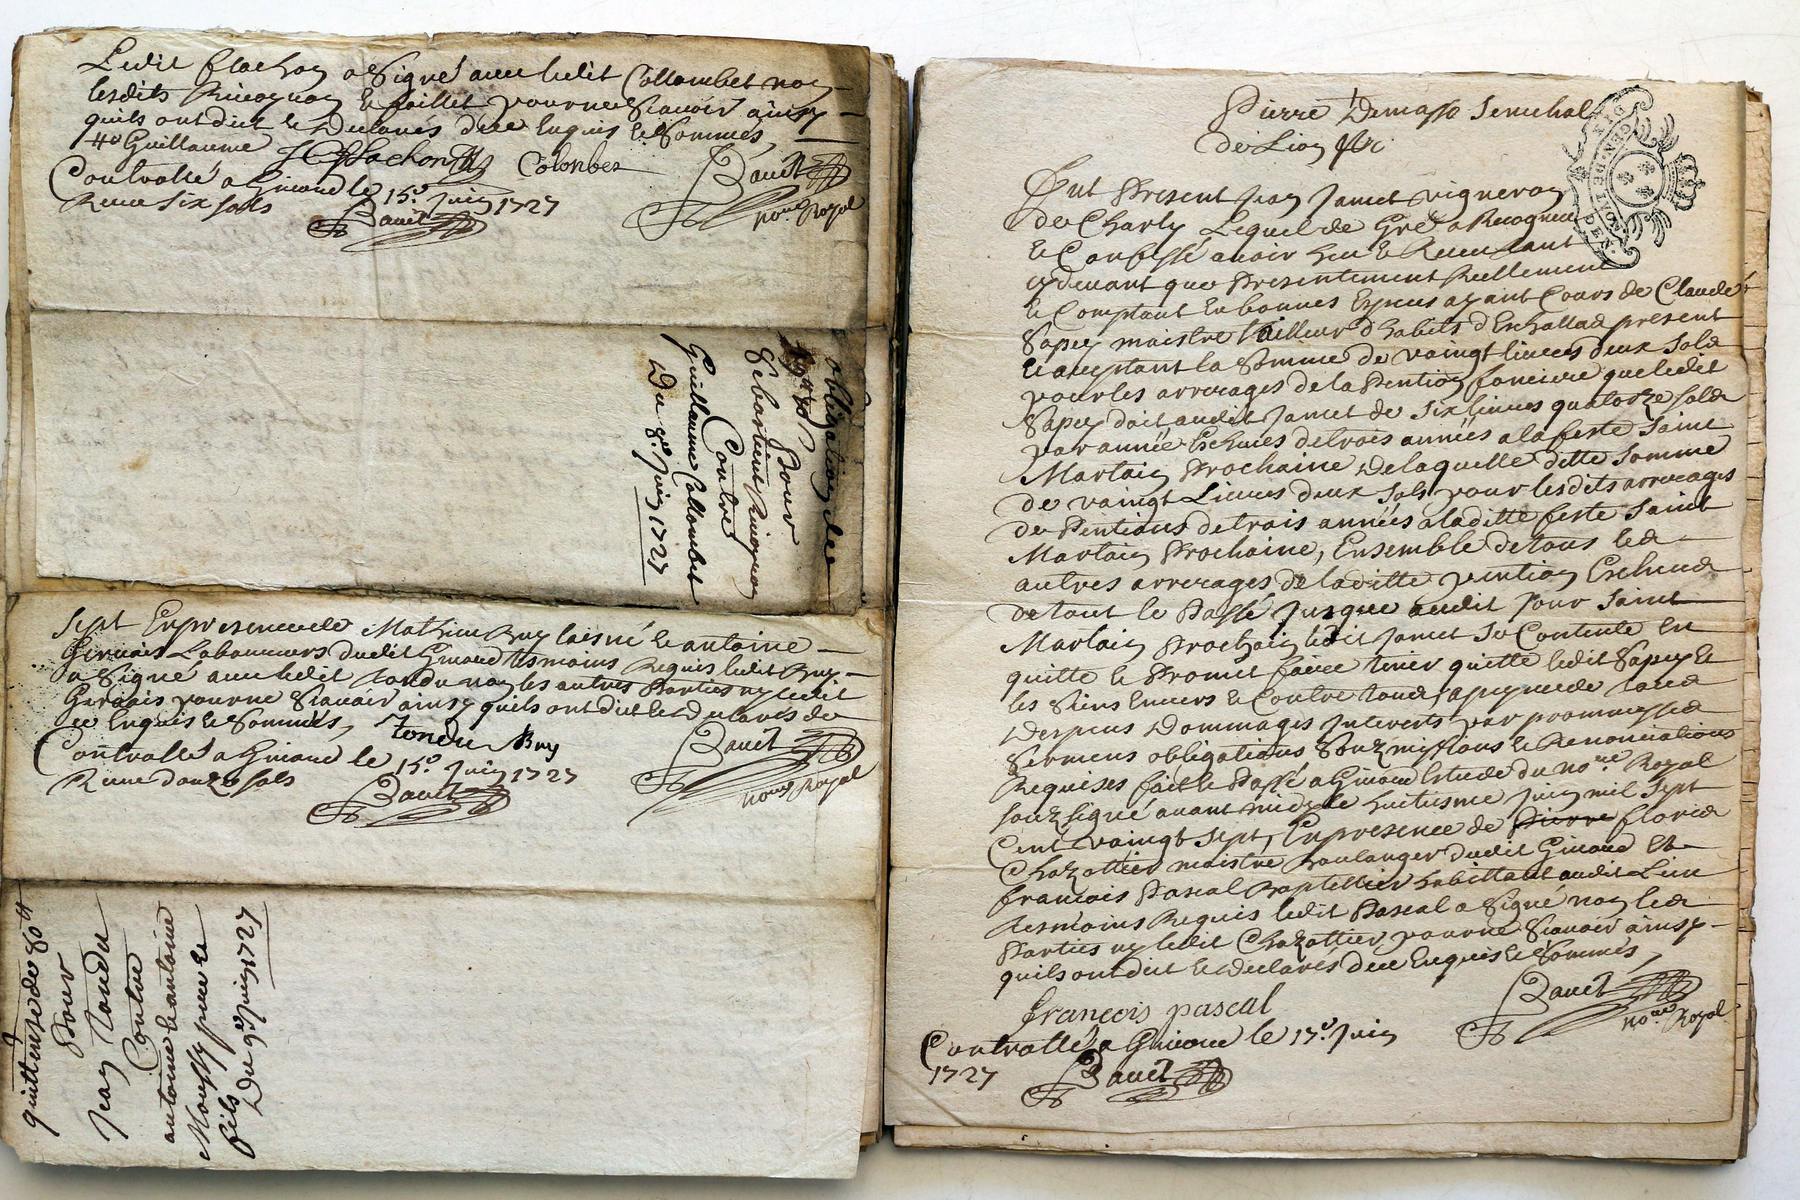 Ledit flachon a signé avec ledit Collombet non
lesdits Ricognon & paillet pour ne scavoir ainsy
quils ont dict & declarés de ce Enquis & sommés,
Guillaume JC flachon Colonbet
Controllé a Givord le 15e Juin 1727
Receu six sols
Bauet
Bauet
no.re Royal
obligation de
Pour
Sebastien Ricognon
Contre
Guillaume Collombet
Du 8e Juin 1727
sept En presence de Mathieu Buy laisné & antoine
Gervais Laboureurs dudit Givord tesmoins Requis ledit Buy
a signé avec ledit tondu non les autres Parties ny ledit
Gervais pour ne scavoir ainsy quils ont dict & declarés de
ce Enquis & sommés, tondu Buy
Controllé a Givord le 15e Juin 1727
Receu douze sols
Bauet
Bauet
no.re Royal
quittence de 80 tt
Pour
Jean tondu
Contre
antoine & antoine
Moussy pere &
fils
Du 9e Juin 1727
Pierre Demasso Senechal
de Lion &c
GEN. DE LION
DEN
Fut Present Jean Jamet vigneron
de Charly Lequel de Gré a Recogneu
& Confessé avoir heu & Receu tant
cy devant que Presentement Reellement
& Comptant En bonnes Especes ayant Cours de Claude
Sapey maistre tailleur d'habits d'Echallas present
& acceptant la somme de vaingt livres deux sols
pour les arrerages de la Pention fonciere que ledit
Sapey doit audit Jamet de six livres quatorze sols
par année Echeues de trois années a la feste Saint
Martain Prochaine, de laquelle ditte somme
de vaingt Livres deux sols pour lesdits arrerages
de Pentions de trois années a laditte feste Saint
Martain Prochaine, Ensemble de tous les
autres arrerages de laditte pention Echeus
de tout le Passé jusque audit jour Saint
Martain Prochain ledit Jamet se Contente En
quitte & Promet faire tenir quitte ledit Sapey &
les siens Envers & Contre tous, a peyne de tous
Despens Dommages Interests par prommesses
sermens obligations soubzmissions & Renonciations
Requises fait & Passé a Givord Estude du no.re Royal
soubzsigné avant midy le huitiesme Juin mil sept
Cent vaingt sept, En presence de pierre floris
Chazottier maistre Boulanger dudit Givord Et
francois Pascal habittant audit Lieu
tesmoins Requis ledit Pascal a signé non les
Parties ny ledit Chazottier, pour ne scavoir ainsy
quils ont dict & declarés de ce Enquis & sommés,
françois pascal
Bauet
no.re Royal
Controllé a Givord le 15e Juin
1727
Bauet